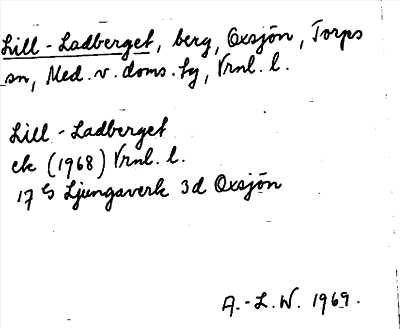 Lill-Ladberget, berg, Oxsjön, Torps
sn, Med. v. doms. fg, Vrnl. l.
Lill-Ladberget
ek (1968) Vrnl. l.
17 G Ljungaverk 3d Oxsjön
A.-L.W. 1969.